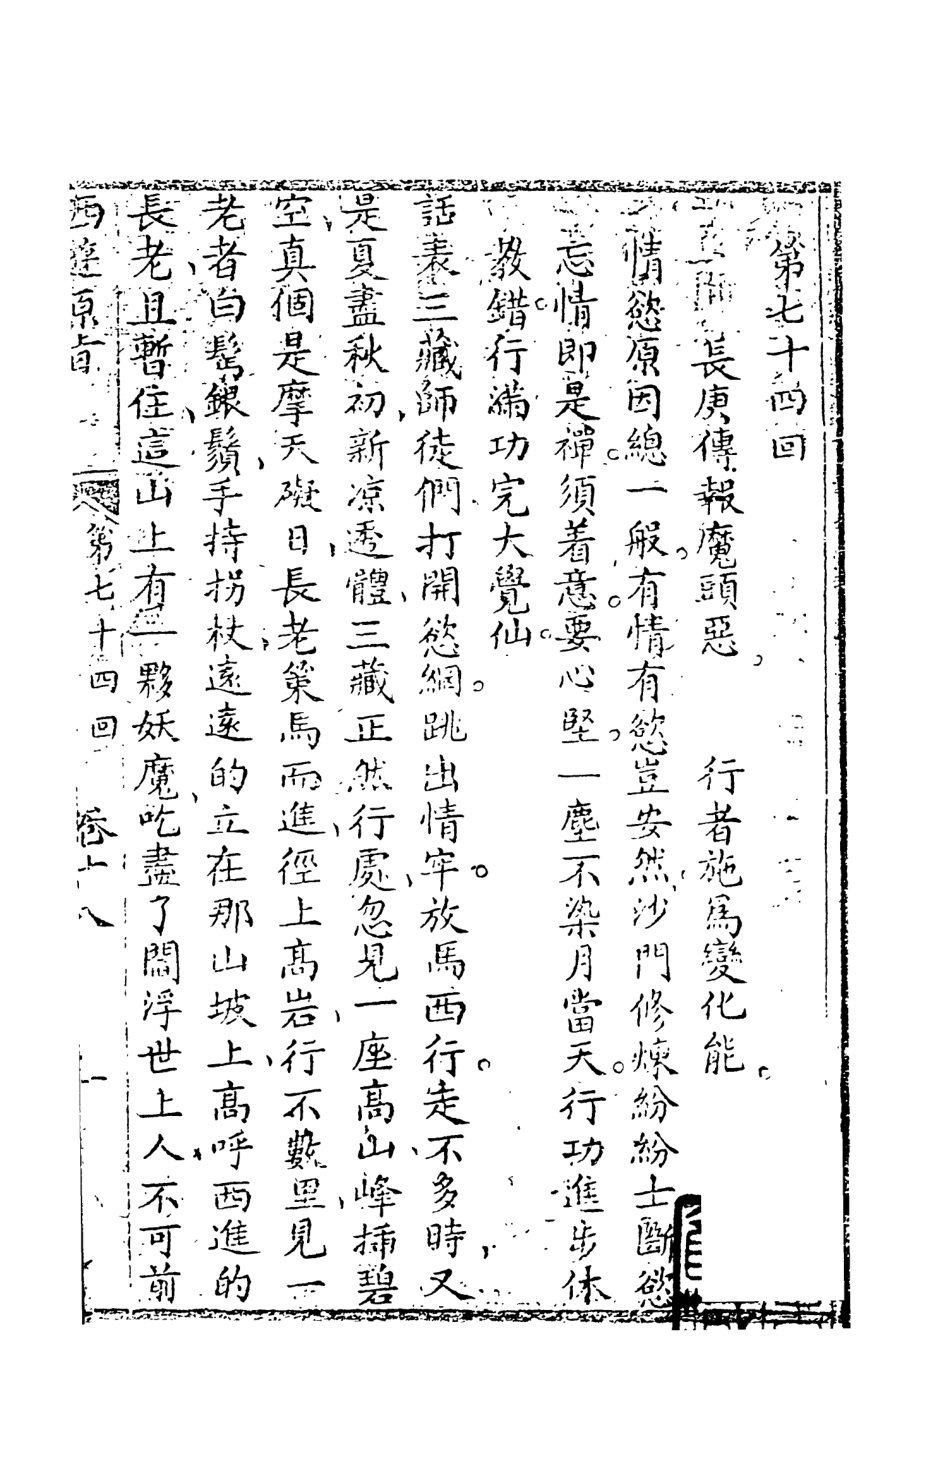 第七十四回
長庚傳報魔頭惡。　行者施爲變化能。
情慾原因總一般。有情有慾豈安然。沙門修煉紛紛士。斷慾
忘情即是禪。須着意。要心堅。一塵不染月當天。行功進步休
教錯。行滿功完大覺仙。
話表三藏師徒們打開慾網。跳出情牢。放馬西行。走不多時、又
是夏盡秋初、新凉透體、三藏正然行處、忽見一座高山、峰揷碧
空、真個是摩天礙日、長老策馬而進、徑上高岩、行不數里、見一
老者白髩銀鬚、手持拐杖、遠遠的立在那山坡上、高呼西進的
長老、且暫住、這山上有一夥妖魔、吃盡了閻浮世上人、不可前
西遊原旨　第七十四回　卷十八　一